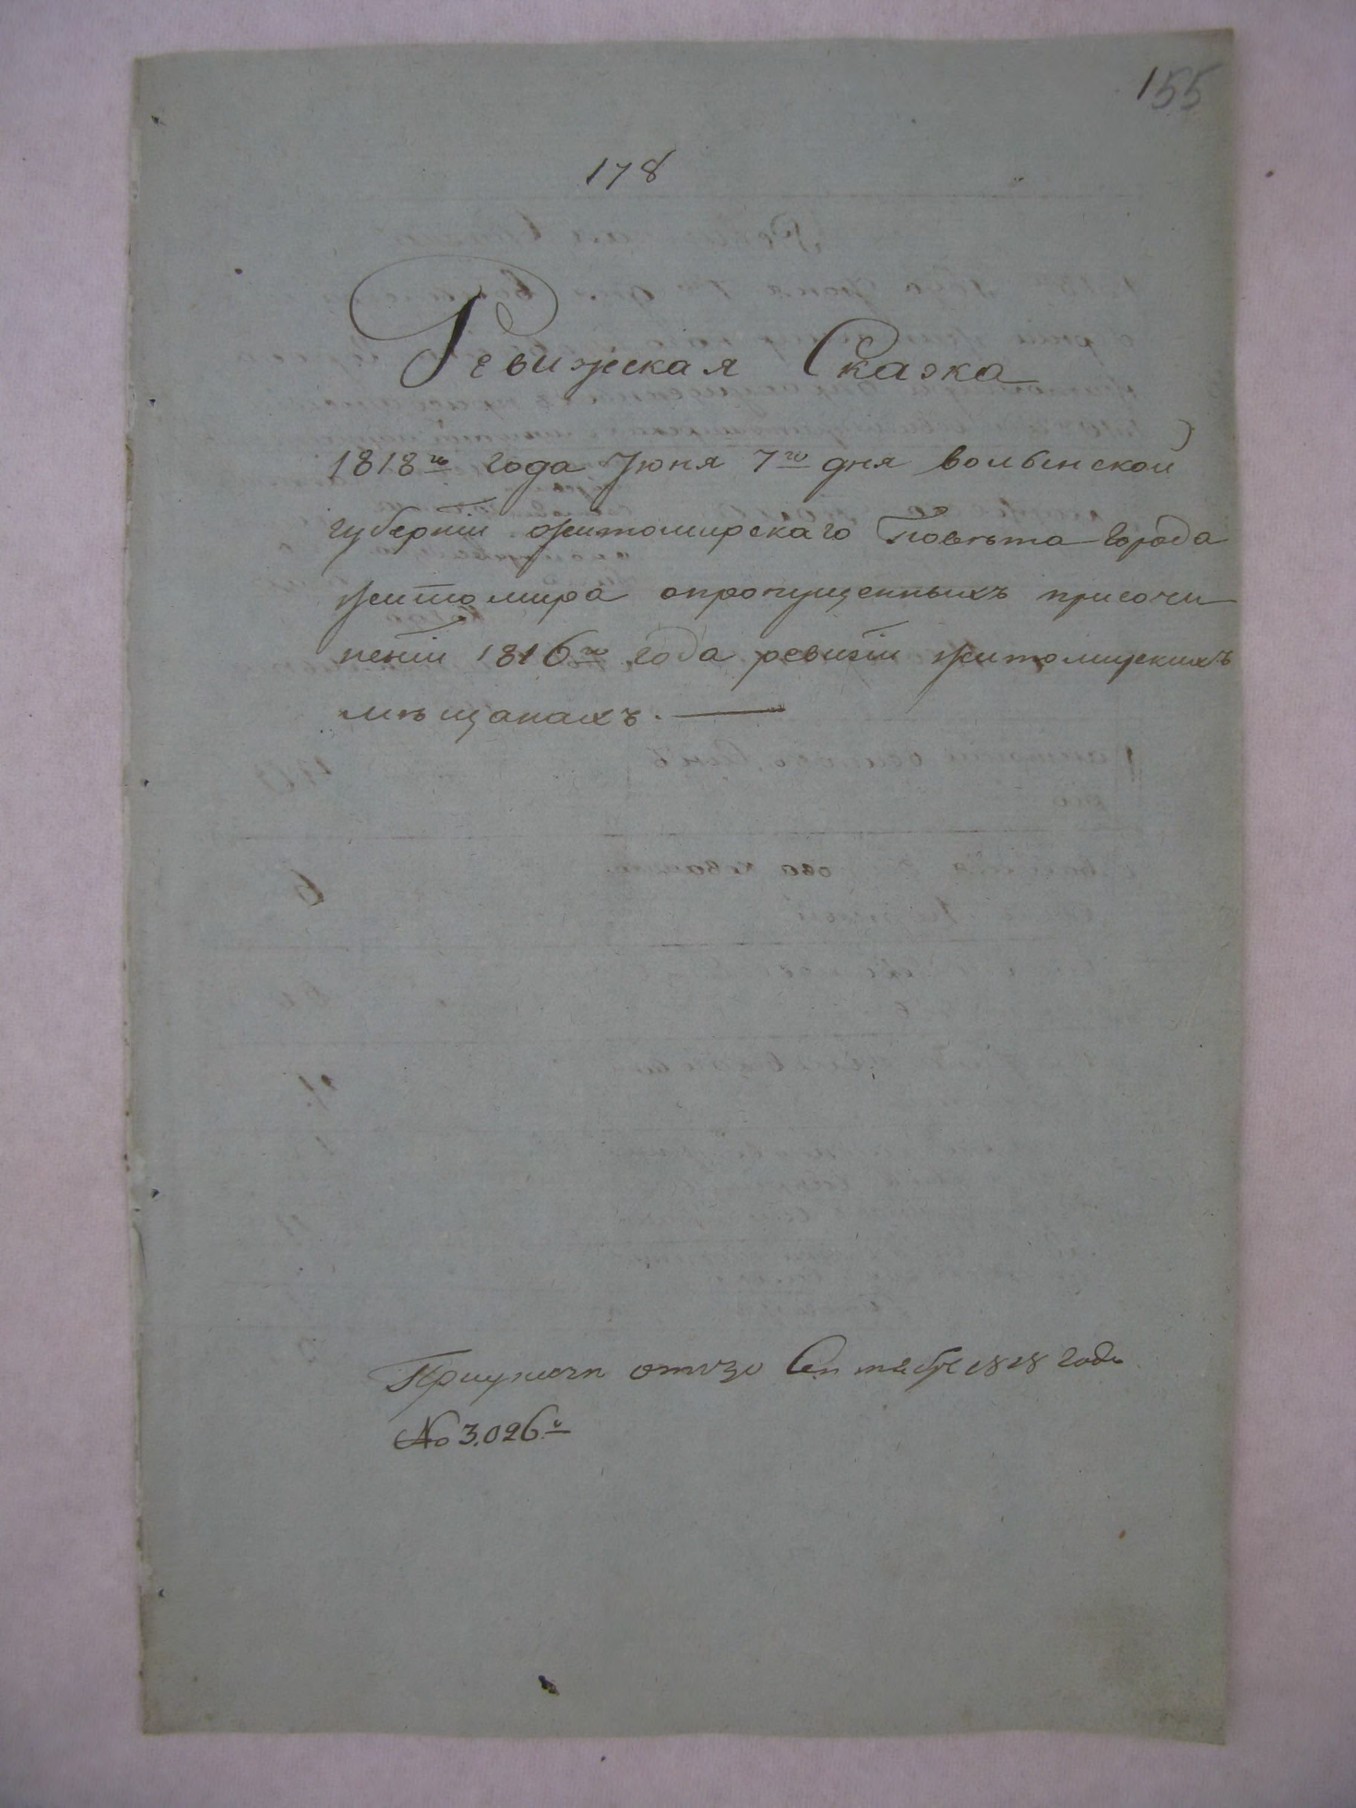 155
178
Ревижская Сказка
1818го года Июня 7го дня волынской
губерніи житомирскаго Повѣта города
житомира опропущенныхъ присочи
неніи 1816го года ревизіи житомирскихъ
мѣщанахъ.
Сентября 1818 года
№ 3.026й